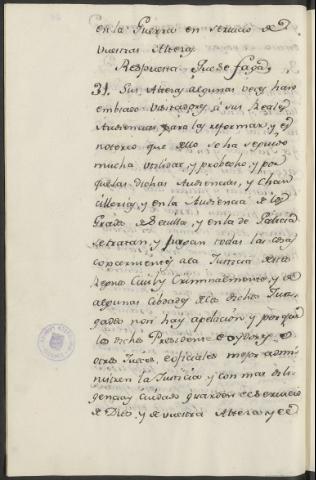 en la Guerra en servicio de
vuestras Altezas
Respuesta. Que se haga.
31. Sus Altezas algunas veces han
embiado Visitadores a sus Reales
Audiencias para las reformar, y es
notorio que dello se ha seguido
mucha utilidad, y probecho, y por
que las dichas Audiencias, y Chan
cillerias, y en la Audiencia de los
Grados de Sevilla, y en la de Galicia
se tratan, y juzgan todas las cosas
concernientes a la Justicia destos
Reynos Cauil y Criminalmente, y de
algunas Cibdades de los dichos Juz
gados non hay apelacion, y porque
los dichos Presidente e oydores, e
otros Jueces, e oficiales mejor admi
nistren la Justicia y con mas dili
gencia, y cuidado guarden el servicio
de Dios, y de vuestra Alteza, y el